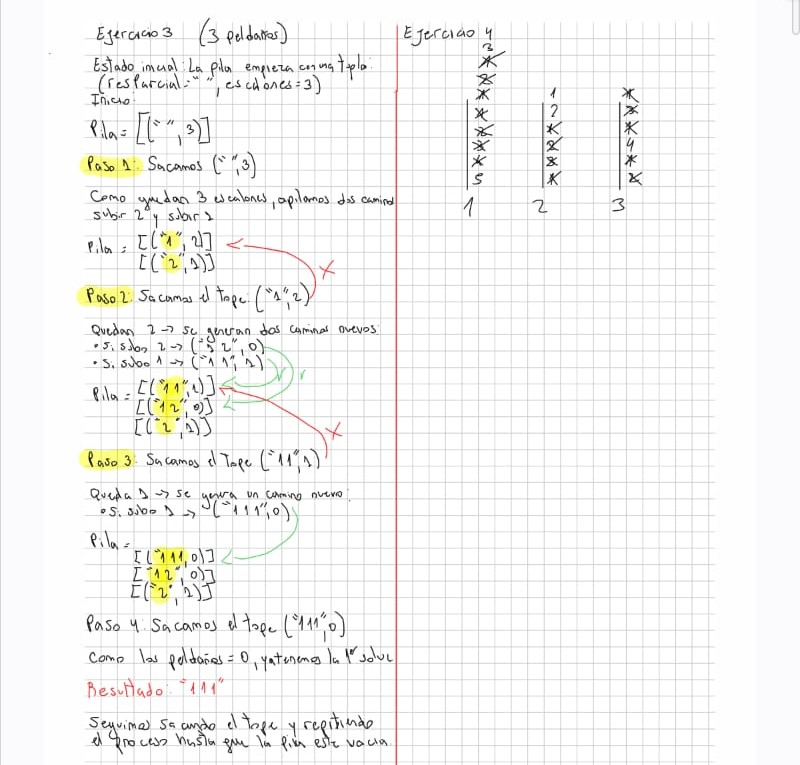 Ejercicio 3 (3 peldaños)
Estado inicial: La pila empieza con una tupla:
(resParcial = "", escalones = 3)
Inicio:
Pila = [("", 3)]
Paso 1: Sacamos ("", 3)
Como quedan 3 escalones, apilamos dos caminos
subir 2 y subir 1
Pila = [("1", 2)]
[("2", 1)]
Paso 2: Sacamos el tope: ("1", 2)
Quedan 2 -> se generan dos caminos nuevos:
• Si subo 2 -> ("12", 0)
• Si subo 1 -> ("11", 1)
Pila = [("11", 1)]
[("12", 0)]
[("2", 1)]
Paso 3: Sacamos el Tope ("11", 1)
Queda 1 -> se genera un camino nuevo:
• Si subo 1 -> ("111", 0)
Pila =
[("111, 0)]
[("12", 0)]
[("2", 1)]
Paso 4: Sacamos el tope ("111", 0)
Como los peldaños = 0, ya tenemos la 1º soluc
Resultado: "111"
Seguimos sacando el tope y repitiendo
el proceso hasta que la pila este vacia.
Ejercicio 4
3
5
1
2
4
1 2 3